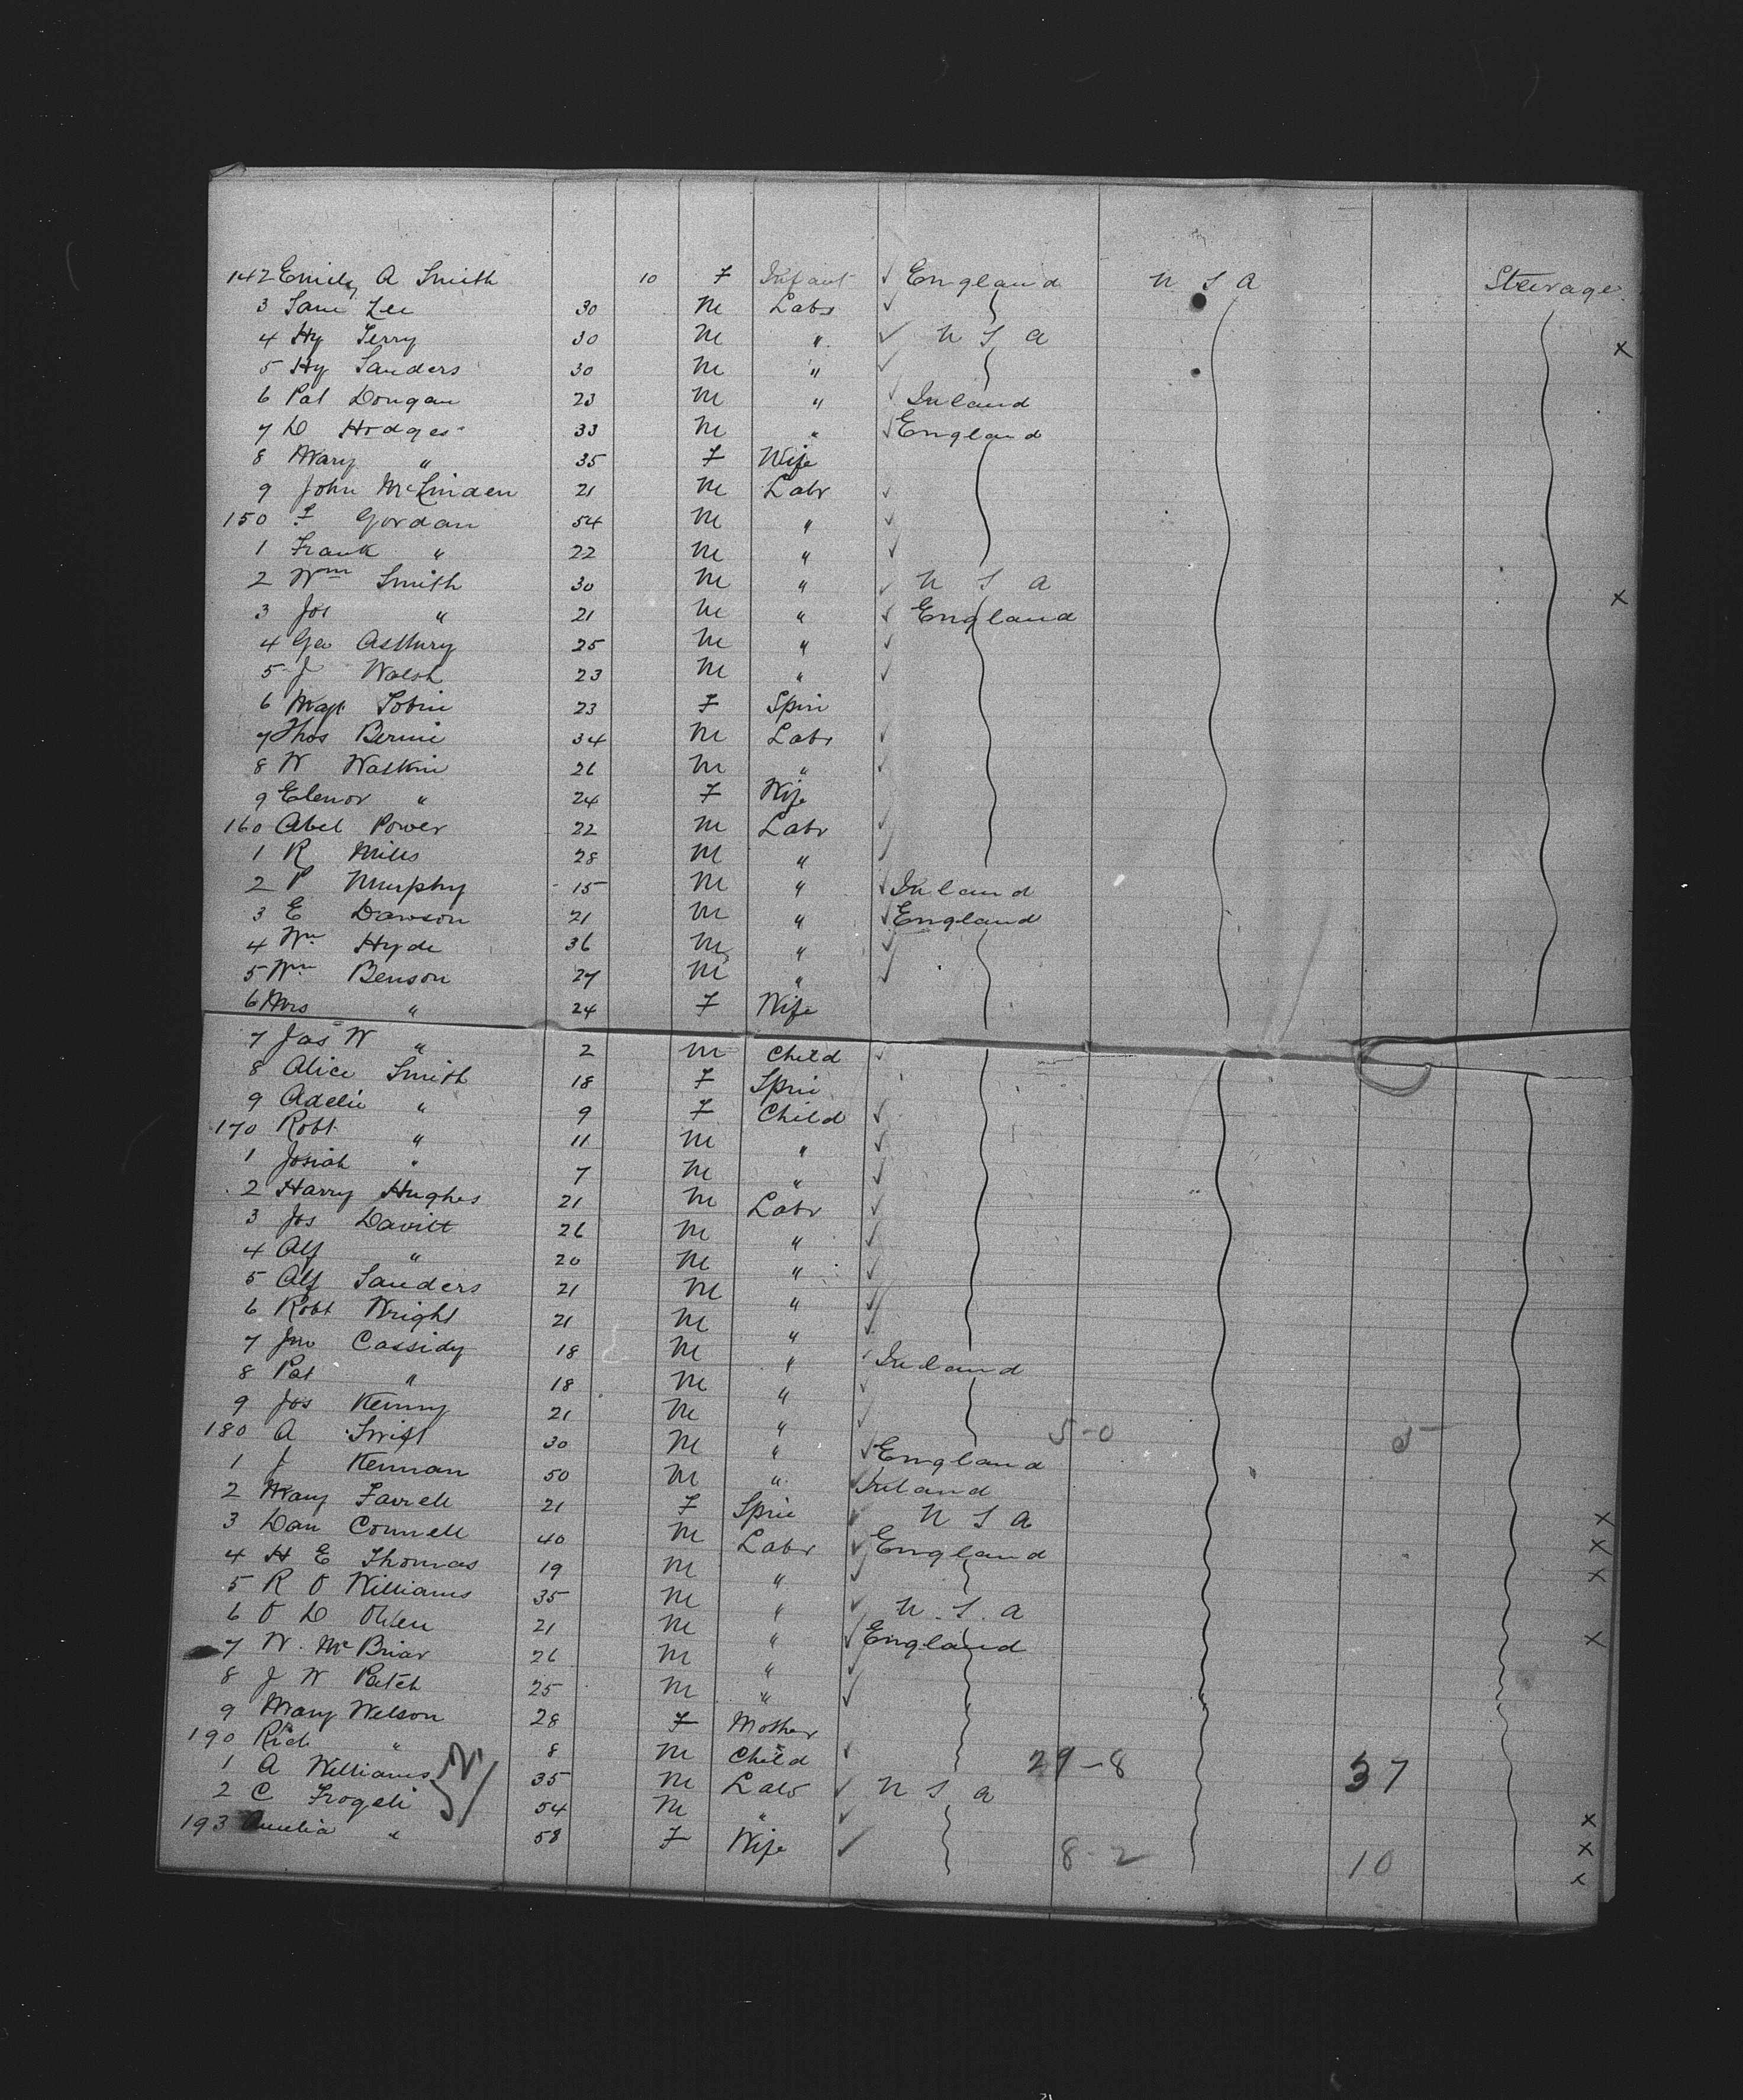 142 Emily A Smith 10 F Infant ✓ England U S A Steerage
3 Sam Lee 30 M Labr ✓
4 Hy Terry 30 M " ✓ U S A x
5 Hy Sanders 30 M " ✓
6 Pat Dougan 23 M " ✓ Ireland
7 D Hodges 33 M " ✓ England
8 Mary " 35 F Wife
9 John McLinden 21 M Labr ✓
150 F Gordan 54 M " ✓
1 Frank " 22 M " ✓
2 Wm Smith 30 M " ✓ U S A
3 Jos " 21 M " ✓ England x
4 Geo Astbury 25 M " ✓
5 J Walsh 23 M " ✓
6 Magt Tobin 23 F Spin
7 Thos Birnie 34 M Labr ✓
8 W Watkin 26 M " ✓
9 Elenor " 24 F Wife
160 Abel Power 22 M Labr ✓
1 R Miles 28 M " ✓
2 P Murphy 15 M " ✓ Ireland
3 E Dawson 21 M " ✓ England
4 Wm Hyde 36 M " ✓
5 Wm Benson 27 M " ✓
6 Mrs " 24 F Wife
7 Jas W " 2 M Child ✓
8 Alice Smith 18 F Spin
9 Adelie " 9 F Child ✓
170 Robt " 11 M " ✓
1 Josiah " 7 M " ✓
2 Harry Hughes 21 M Labr ✓
3 Jos Davitt 26 M " ✓
4 Alf " 20 M " ✓
5 Alf Sanders 21 M " ✓
6 Robt Wright 21 M " ✓
7 Jno Cassidy 18 M " ✓ Ireland
8 Pat " 18 M " ✓
9 Jos Kenny 21 M " ✓ 5-0 5
180 A Swift 30 M " ✓ England
1 J Kennan 50 M " ✓ Ireland
2 Mary Farrell 21 F Spin ✓ U S A x
3 Dan Connell 40 M Labr ✓ England x
4 H E Thomas 19 M " ✓ x
5 R O Williams 35 M " ✓ U. S. A
6 O D Owen 21 M " ✓ England x
7 W. McBriar 26 M " ✓
8 J W Patch 25 M " ✓
9 Mary Welson 28 F Mother
190 Rich " 8 M Child ✓ 29-8 37
1 A Williams 35 M Labr ✓ U S A
2 C Frogeli 54 M " ✓ x
193 Amelia " 58 F Wife ✓ 8-2 10 x
x